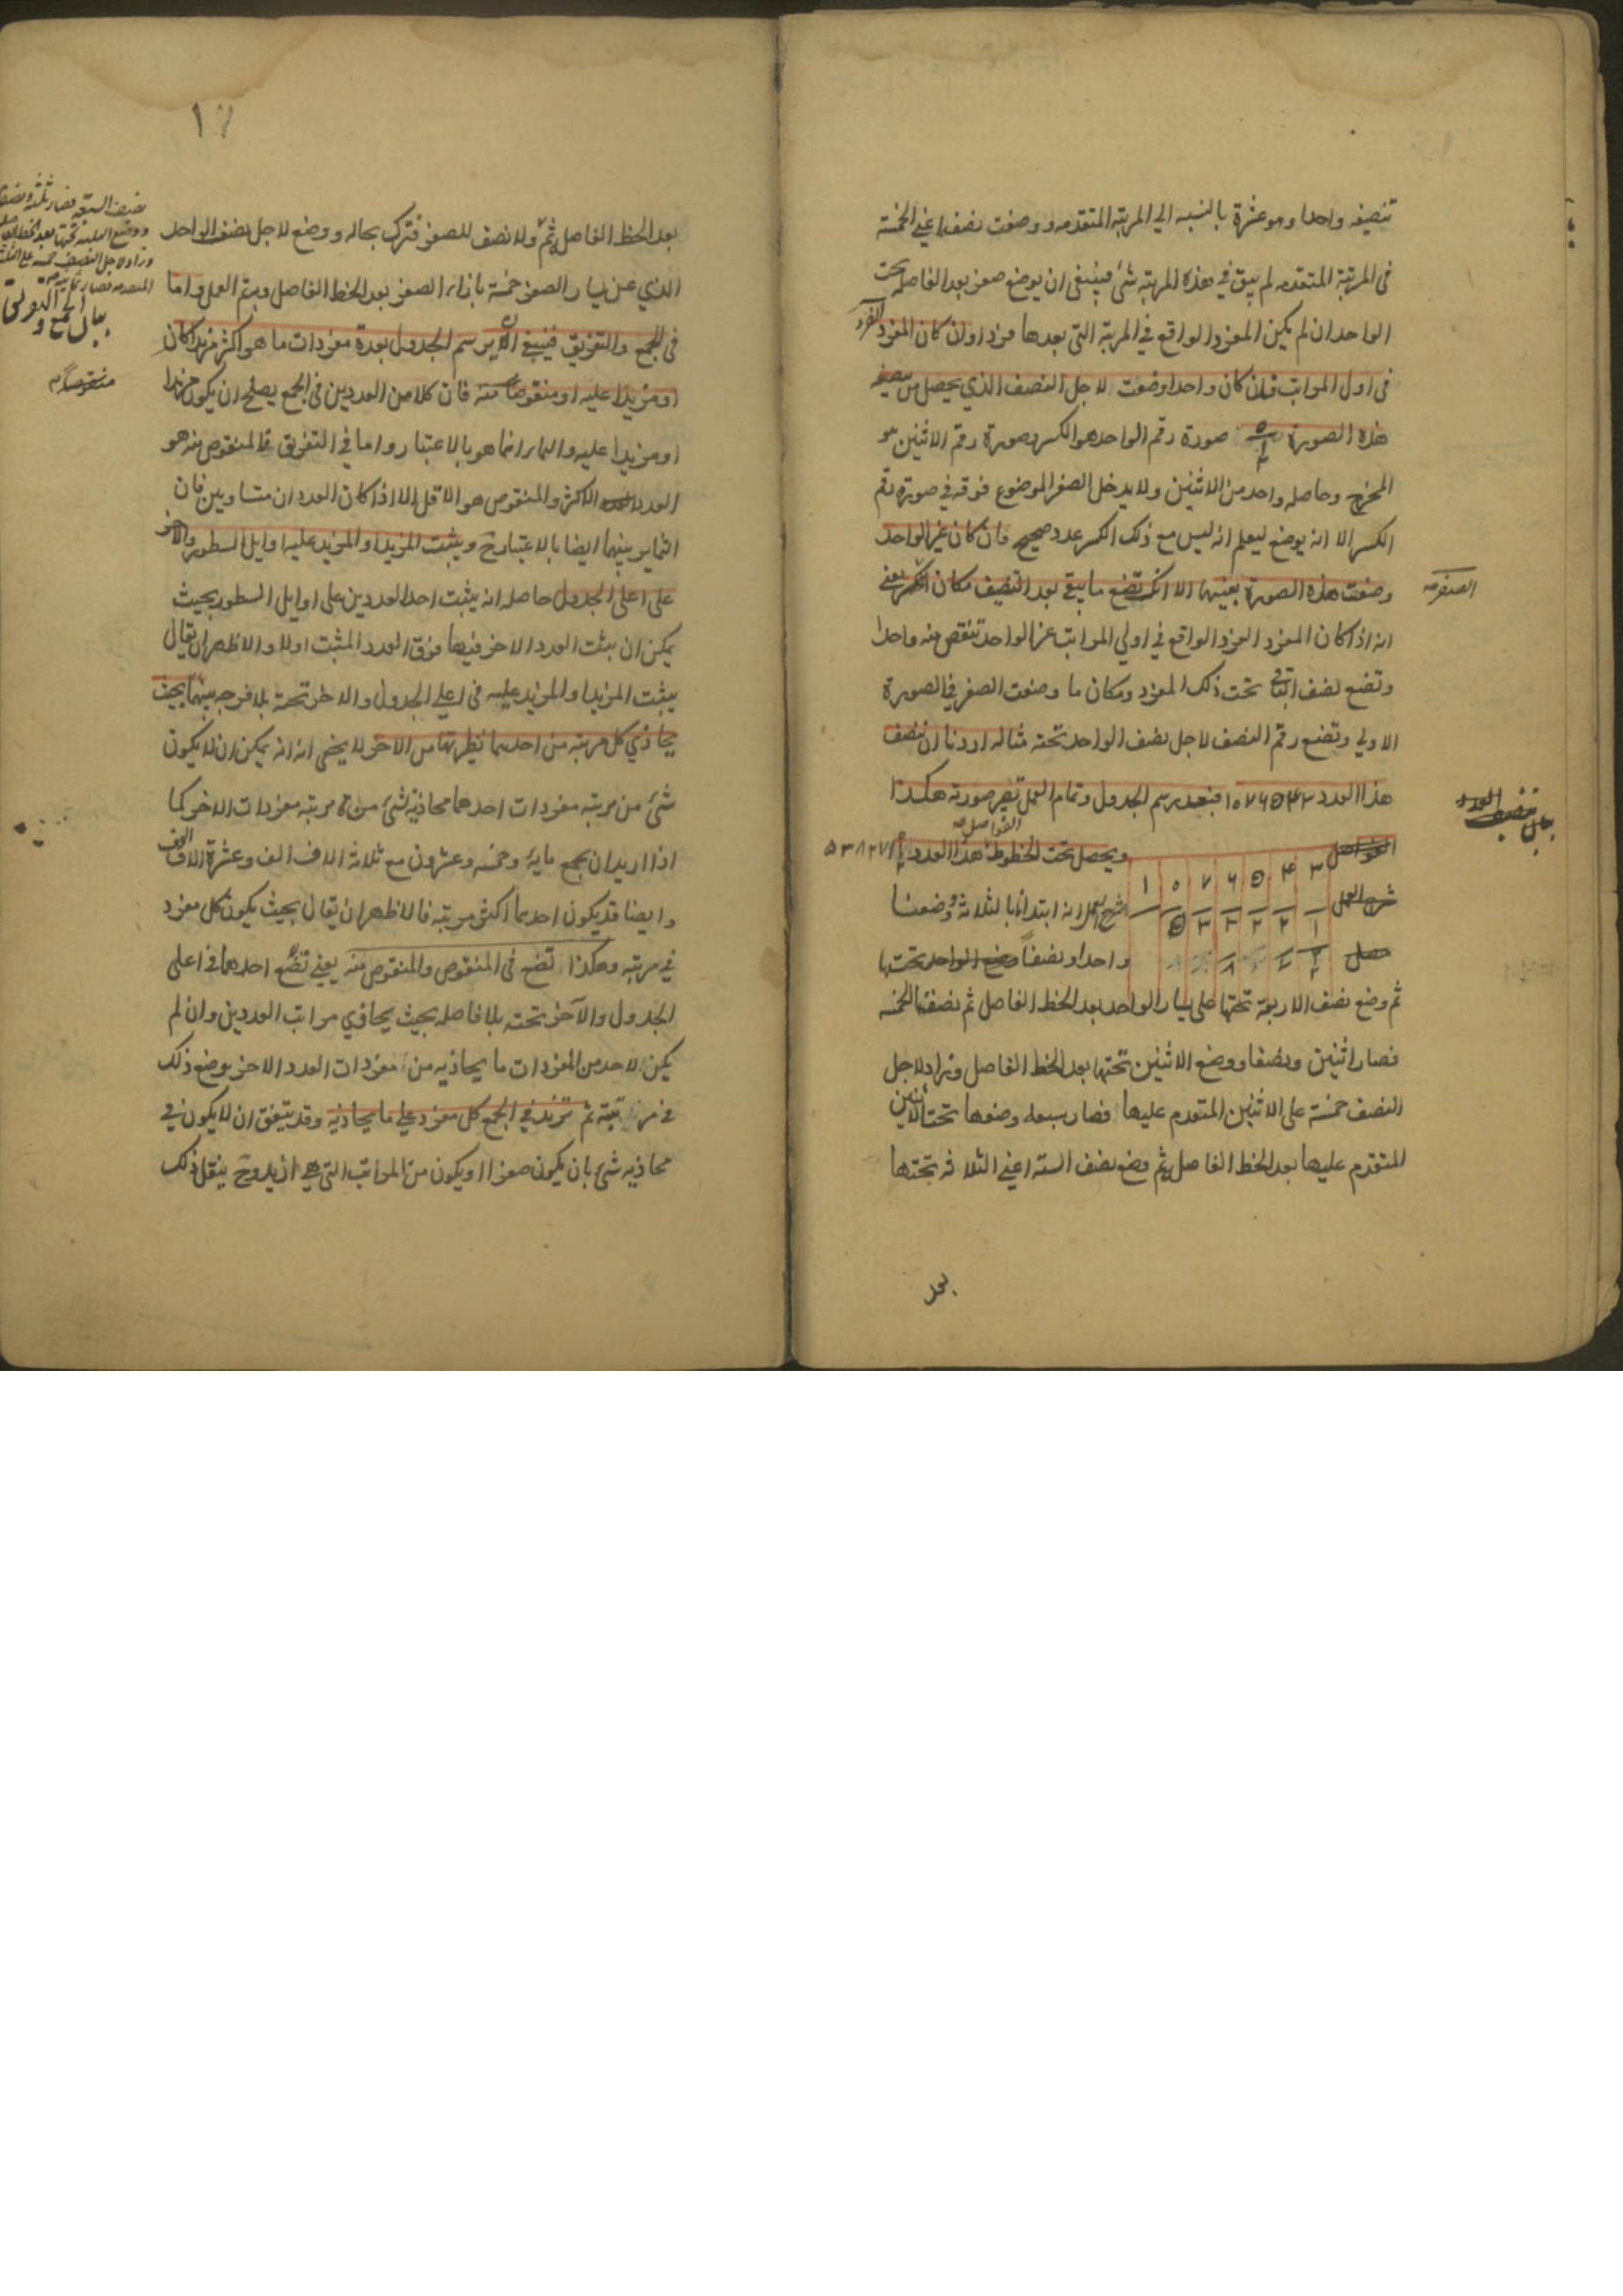 تنصيفه واحدا وهو عشرة بالنسبه الي المرتبة المتقدمه ووضعت نصفه اعني الخمسة
في المرتبة المتقدمه لم يبق في هذه المرتبة شئ فينبغي ان يوضع صفر بعد الفاصله تحت
الواحد ان لم يكن المفرد الواقع في المرتبة التي بعدها فردا وان كان المفرد الفرد
في اول المراتب فان كان واحدا وضعت لاجل النصف الذي يحصل من تنصيفه
هذه الصورة صورة رقم الواحد هو الكسر وصورة رقم الاثنين هو
المخرج وحاصله واحد من الاثنين ولا يدخل الصفر الموضوع فوقه في صورة رقم
الكسر الا انه يوضع ليعلم انه ليس مع ذلك الكسر عدد صحيح وان كان غير الواحد
وضعت هذه الصورة بعينها الا انك تضع ما يبقي بعد التنصيف مكان الصفر يعني
انه اذا كان المفرد الفرد الواقع في اولي المراتب غير الواحد تنقص منه واحدا
وتضع نصف الباقي تحت ذلك المفرد ومكان ما وضعت الصفر في الصورة
الاولي وتضع رقم النصف لاجل نصف الواحد تحته مثاله اردنا ان ننصف
هذا العدد ١٠٧۶۵۴۳ فبعد رسم الجدول وتمام العمل تصير صورته هكذا
ويحصل تحت الخطوط الفواصل هذا العدد ۵۳۸۲۷۱
١ ٠ ٧ ۶ ۵ ۴ ٣
شرح العمل انه ابتدانا بالثلاثة ووضعنا
۵ ٣ ٣ ٢ ٢ ١
واحدا ونصفا وضع الواحد تحتها
ثم وضع نصف الاربعة تحتها علي يسار الواحد بعد الخط الفاصل ثم نصفنا الخمسه
فصار اثنين ونصفا ووضع الاثنين تحتها بعد الخط الفاصل وزاد لاجل
النصف خمسة على الاثنين المتقدم عليها فصار سبعه وضعوها تحت الاثنين
المتقدم عليها بعد الخط الفاصل ثم وضع نصف الستة اعني الثلاثه تحتها
بعد
بيان تنصيف العدد
١٧
بعد الخط الفاصل ثم ولا نصف للصفر فترك بحاله ووضع لاجل نصف الواحد
الذي عن يسار الصفر خمسة بازاء الصفر بعد الخط الفاصل ويتم العمل واما
في الجمع والتفريق فينبغي ان يرسم الجدول بعدة مفردات ما هو اكثر مزيدا كان
او مزيدا عليه او منقوصا منه فان كلا من العددين في الجمع يصلح ان يكون مزيدا
او مزيدا عليه والتمايز انما هو بالاعتبار واما في التفريق فالمنقوص منه هو
العدد الاكثر والمنقوص هو الاقل الا اذا كان العددان متساويين فان
التمايز بينهما ايضا بالاعتبار ويثبت المزيد او المزيد عليه اوايل السطور والاخر
على اعلى الجدول حاصله انه يثبت احد العددين على اوايل السطور بحيث
يمكن ان يثبت العدد الاخر فيها فوق العدد المثبت اولا والاظهر ان يقال
يثبت المزيد او المزيد عليه في اعلي الجدول والاخر تحته بلا فرجه بينهما بحيث
يحاذي كل مرتبه من احدهما نظيرتها من الاخر لا يخفى انه يمكن ان لا يكون
شئ من مرتبه مفردات احدهما محاذيه لشئ من مرتبه مفردات الاخر كما
اذا اريد ان يجمع مايه وخمسه وعشرون مع ثلاثة الاف الف وعشرة الاف
وايضا قد يكون احدهما اكثر مرتبه فالاظهر ان يقال بحيث يكون كل مفرد
في مرتبه وهكذا تضع في المنقوص والمنقوص منه يعني تضع احدهما في اعلى
الجدول والآخر تحته بلا فاصله بحيث يحاذي مراتب العددين وان لم
يكن لاحد من المفردات ما يحاذيه من مفردات العدد الاخر يوضع ذلك
في مرتبته ثم تزيد في الجمع كل مفرد علي ما يحاذيه وقد يتفق ان لا يكون في
محاذيه شئ بان يكون صفرا او يكون من المراتب التي هي ازيد وح ينقل ذلك
بيان الجمع و التفريق